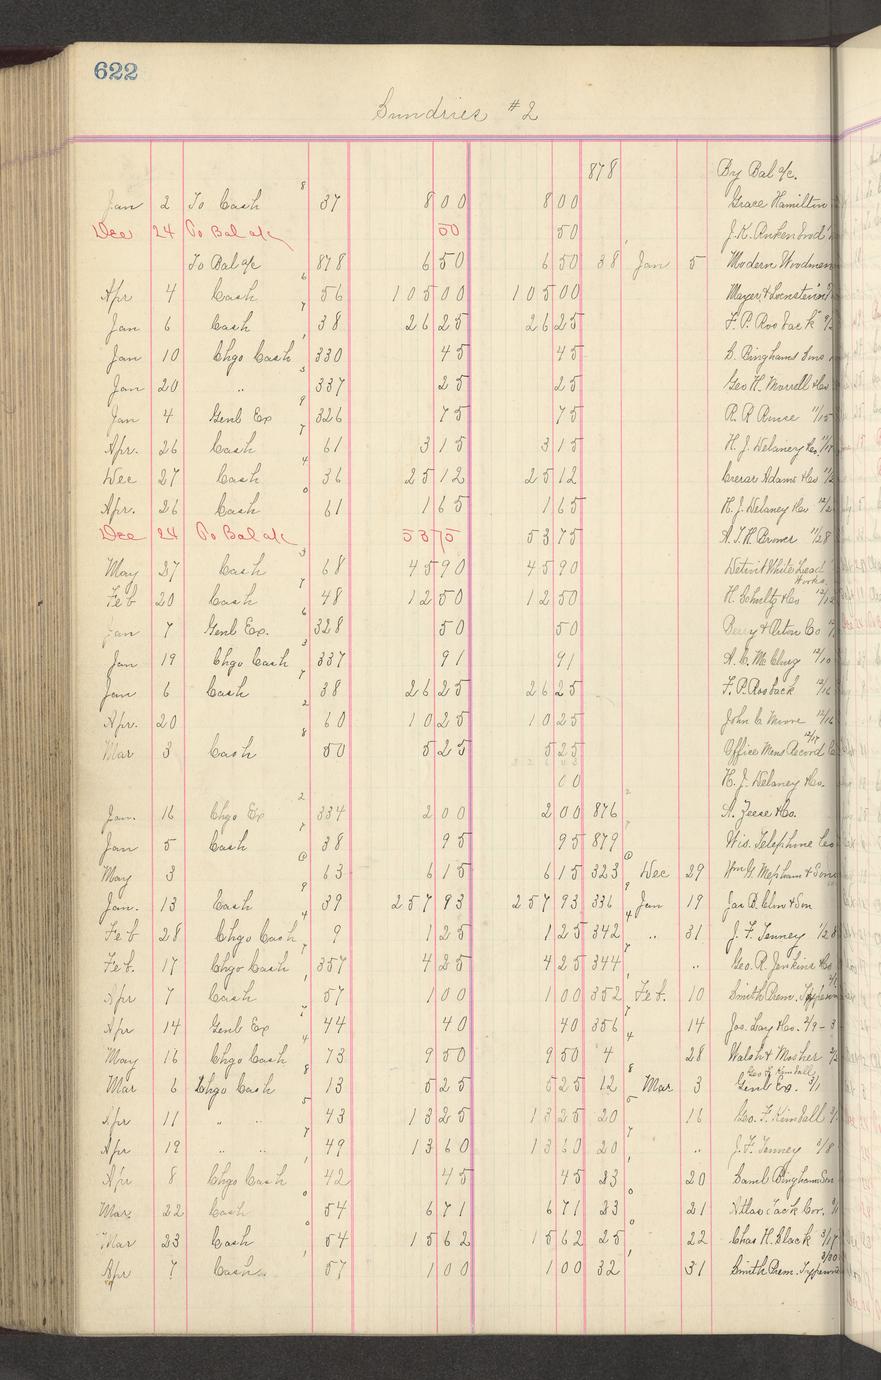 622
Sundries #2
878 By Bal a/c.
Jan 2 To Cash 8 37 8 00 8 00 Grace Hamilton
Dec 24 To Bal a/c 50 50 J. K.
To Bal a/c 878 6 50 6 50 38 Jan 5 Modern Woodmen
Apr 4 Cash 6 56 105 00 105 00 Mayer &
Jan 6 Cash 7 38 26 25 26 25 F. P. Rosback
Jan 10 Chgo Cash 1 330 45 45 S. Binghams Sons
Jan 20 " 3 337 25 25 Geo H. Morrell & Co
Jan 4 Genl Ex 9 326 75 75 R. R. 11/15
Apr. 26 Cash 7 61 3 15 3 15 H. J. Delaney & Co. 11/17
Dec 27 Cash 4 36 25 12 25 12 Crerar Adams & Co
Apr. 26 Cash 0 61 1 65 1 65 H. J. Delaney & Co
Dec 24 To Bal a/c 53 75 53 75 A. T. H. Brower 11/28
May 27 Cash 3 68 45 90 45 90 Detroit White Lead Works
Feb 20 Cash 7 48 12 50 12 50 H. Schultz & Co
Jan 7 Genl Ex. 6 328 50 50 Co
Jan 19 Chgo Cash 3 337 91 91 A. C. McClurg 12/10
Jan 6 Cash 7 38 26 25 26 25 F. P. Rosback 12/16
Apr. 20 2 60 10 25 10 25 John C Moore 12/16
Mar 3 Cash 8 50 5 25 5 25 Office Mens Record Co 12/17
00 H. J. Delaney & Co.
Jan. 16 Chgo Ex 2 334 2 00 2 00 876 2 A. Zeese & Co.
Jan 5 Cash 7 38 95 95 879 7 Wis. Telephone Co
May 3 63 6 15 6 15 323 Dec 29 Wm G. Mepham & Sons
Jan. 13 Cash 9 39 257 93 257 93 336 9 Jan 19 Jas B. Clow & Son
Feb 28 Chgo Cash 4 9 1 25 1 25 342 4 " 31 J. F. Tenney 1/28
Feb. 17 Chgo Cash 7 357 4 25 4 25 344 7 " Geo. R. Jenkins & Co
Apr 7 Cash 1 57 1 00 1 00 352 1 Feb. 10 Smith Prem. Typewri
Apr 14 Genl Ex 7 44 40 40 356 7 14 Jos. Lay & Co. 2/9 - 3
May 16 Chgo Cash 4 73 9 50 9 50 4 4 28 Walsh & Mosher
Mar 6 Chgo Cash 8 13 5 25 5 25 12 8 Mar 3 Genl Ex. Geo F. Kimball 3/1
Apr 11 " " 5 43 13 25 13 25 20 5 16 Geo. F. Kimball
Apr 19 " " 7 49 13 60 13 60 20 7 " J. F. Tenney 3/8
Apr 8 Chgo Cash 1 42 45 45 23 1 20 Saml Bingham Son
Mar. 22 Cash 0 54 6 71 6 71 23 0 21 Atlas Tack Cor.
Mar 23 Cash 0 54 15 62 15 62 25 0 22 Chas H. Black 3/17
Apr 7 Cash 57 1 00 1 00 32 1 31 Smith Prem. Typewri 3/30